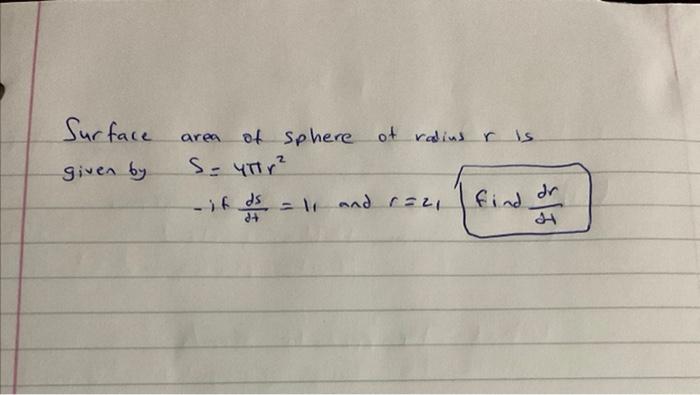 Surface area of sphere of radius r is
given by S = 4πr²
- if ds/dt = 1, and r = 2, find dr/dt